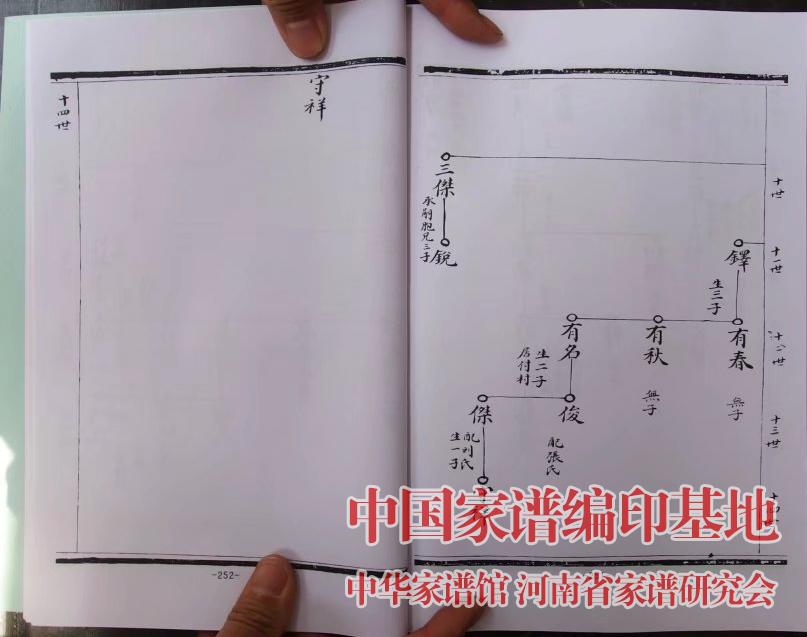 十世
十一世
十二世
十三世
三傑
承嗣胞兄三子
銳
鐸
生三子
有春
無子
有秋
無子
有名
生二子
居付村
俊
配張氏
傑
配刘氏
生一子
守祥
十四世
-252-
中国家谱编印基地
中华家谱馆 河南省家谱研究会